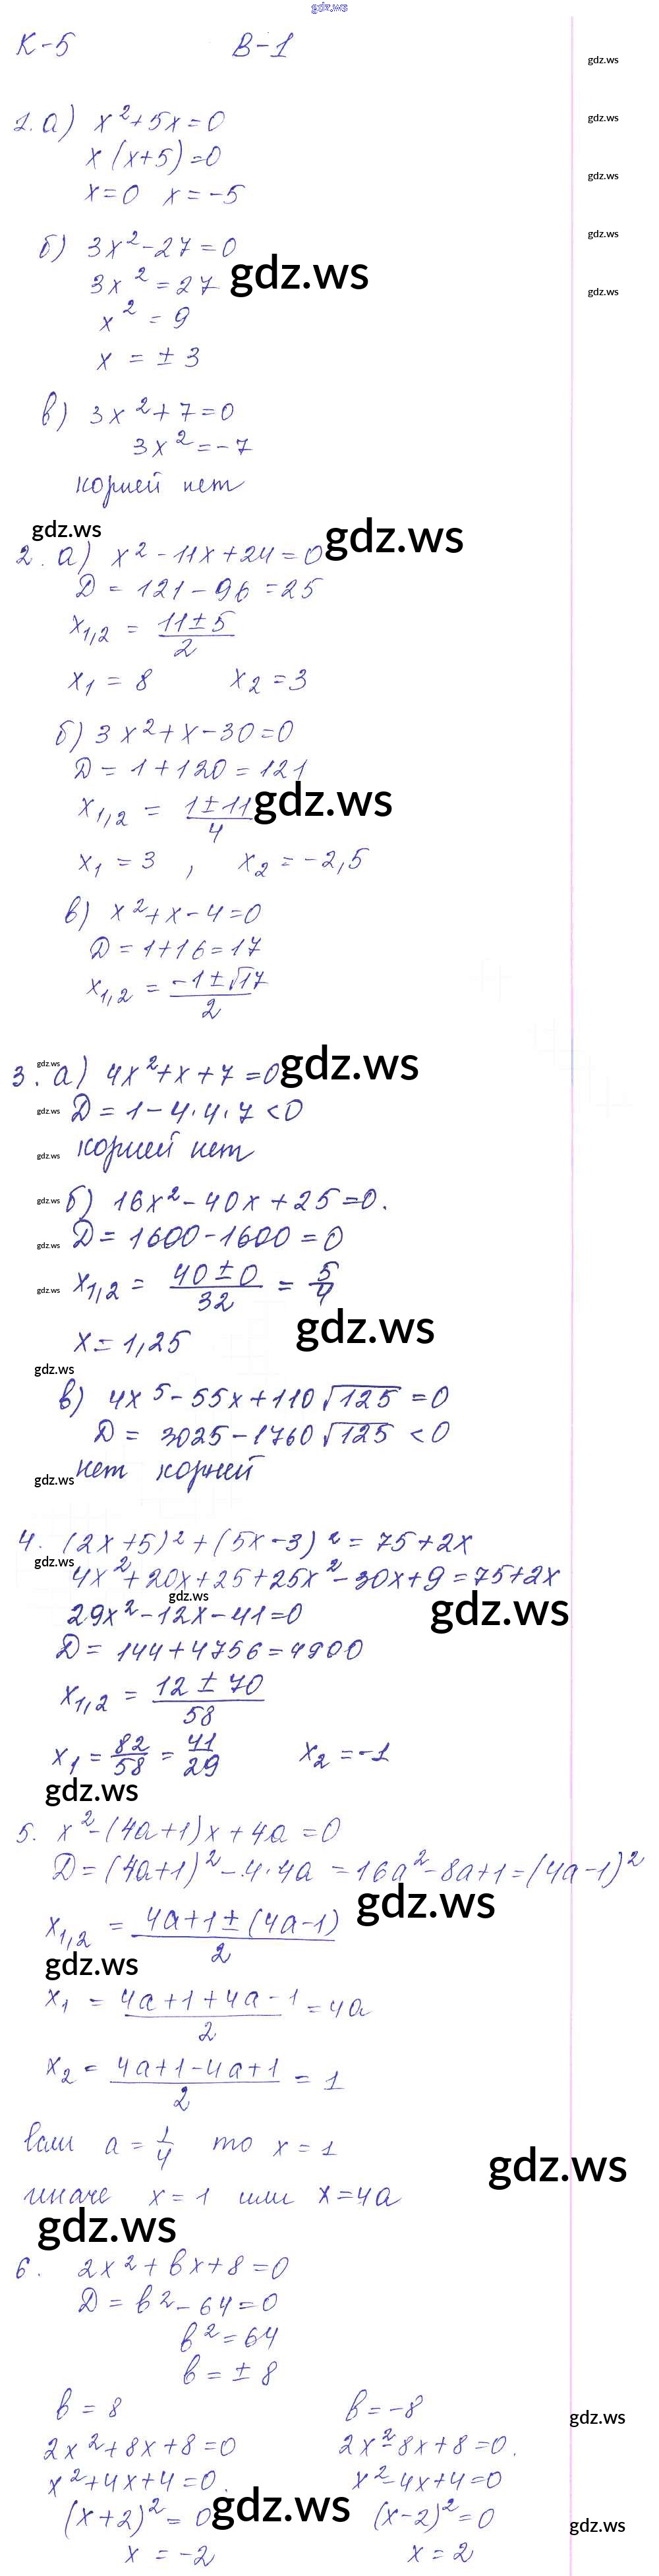 gdz.ws
К-5 В-1
gdz.ws
1. а) x²+5x=0
gdz.ws
x(x+5)=0
gdz.ws
x=0 x=-5
gdz.ws
б) 3x²-27=0
gdz.ws
3x²=27
gdz.ws
x²=9
x=±3
в) 3x²+7=0
3x²=-7
корней нет
gdz.ws
gdz.ws
2. а) x²-11x+24=0
D=121-96=25
x1,2 = (11±5)/2
x1=8 x2=3
б) 3x²+x-30=0
D=1+120=121
gdz.ws
x1,2 = (1±11)/4
x1=3, x2=-2,5
в) x²+x-4=0
D=1+16=17
x1,2 = (-1±√17)/2
gdz.ws
gdz.ws
3. а) 4x²+x+7=0
gdz.ws
D=1-4·4·7<0
gdz.ws
корней нет
gdz.ws
б) 16x²-40x+25=0.
gdz.ws
D=1600-1600=0
gdz.ws
x1,2 = (40±0)/32 = 5/4
gdz.ws
x=1,25
gdz.ws
в) 4x⁵-55x+110√125=0
D=3025-1760√125<0
нет корней
gdz.ws
4. (2x+5)²+(5x-3)²=75+2x
gdz.ws
4x²+20x+25+25x²-30x+9=75+2x
gdz.ws
gdz.ws
29x²-12x-41=0
D=144+4756=4900
x1,2 = (12±70)/58
x1 = 82/58 = 41/29 x2=-1
gdz.ws
5. x²-(4a+1)x+4a=0
D=(4a+1)²-4·4a=16a²-8a+1=(4a-1)²
gdz.ws
x1,2 = (4a+1±(4a-1))/2
gdz.ws
x1 = (4a+1+4a-1)/2 = 4a
x2 = (4a+1-4a+1)/2 = 1
если a=1/4 то x=1
gdz.ws
иначе x=1 или x=4a
gdz.ws
6. 2x²+bx+8=0
D=b²-64=0
b²=64
b=±8
b=8 b=-8
gdz.ws
2x²+8x+8=0 2x²-8x+8=0.
x²+4x+4=0. x²-4x+4=0
gdz.ws
(x+2)²=0 (x-2)²=0
gdz.ws
x=-2 x=2